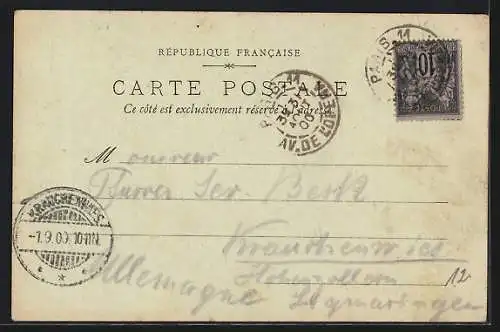 RÉPUBLIQUE FRANÇAISE
CARTE POSTALE
Ce côté est exclusivement réservé à l'adresse
PARIS 11
AV. DE L'OPÉRA
PARIS 11
10
Monsieur
Pfarrer Ser. Berk
Krauchenwies
Hohenzollern
Allemagne Sigmaringen
KRAUCHENWIES
-1.9.00.10-11N.
12